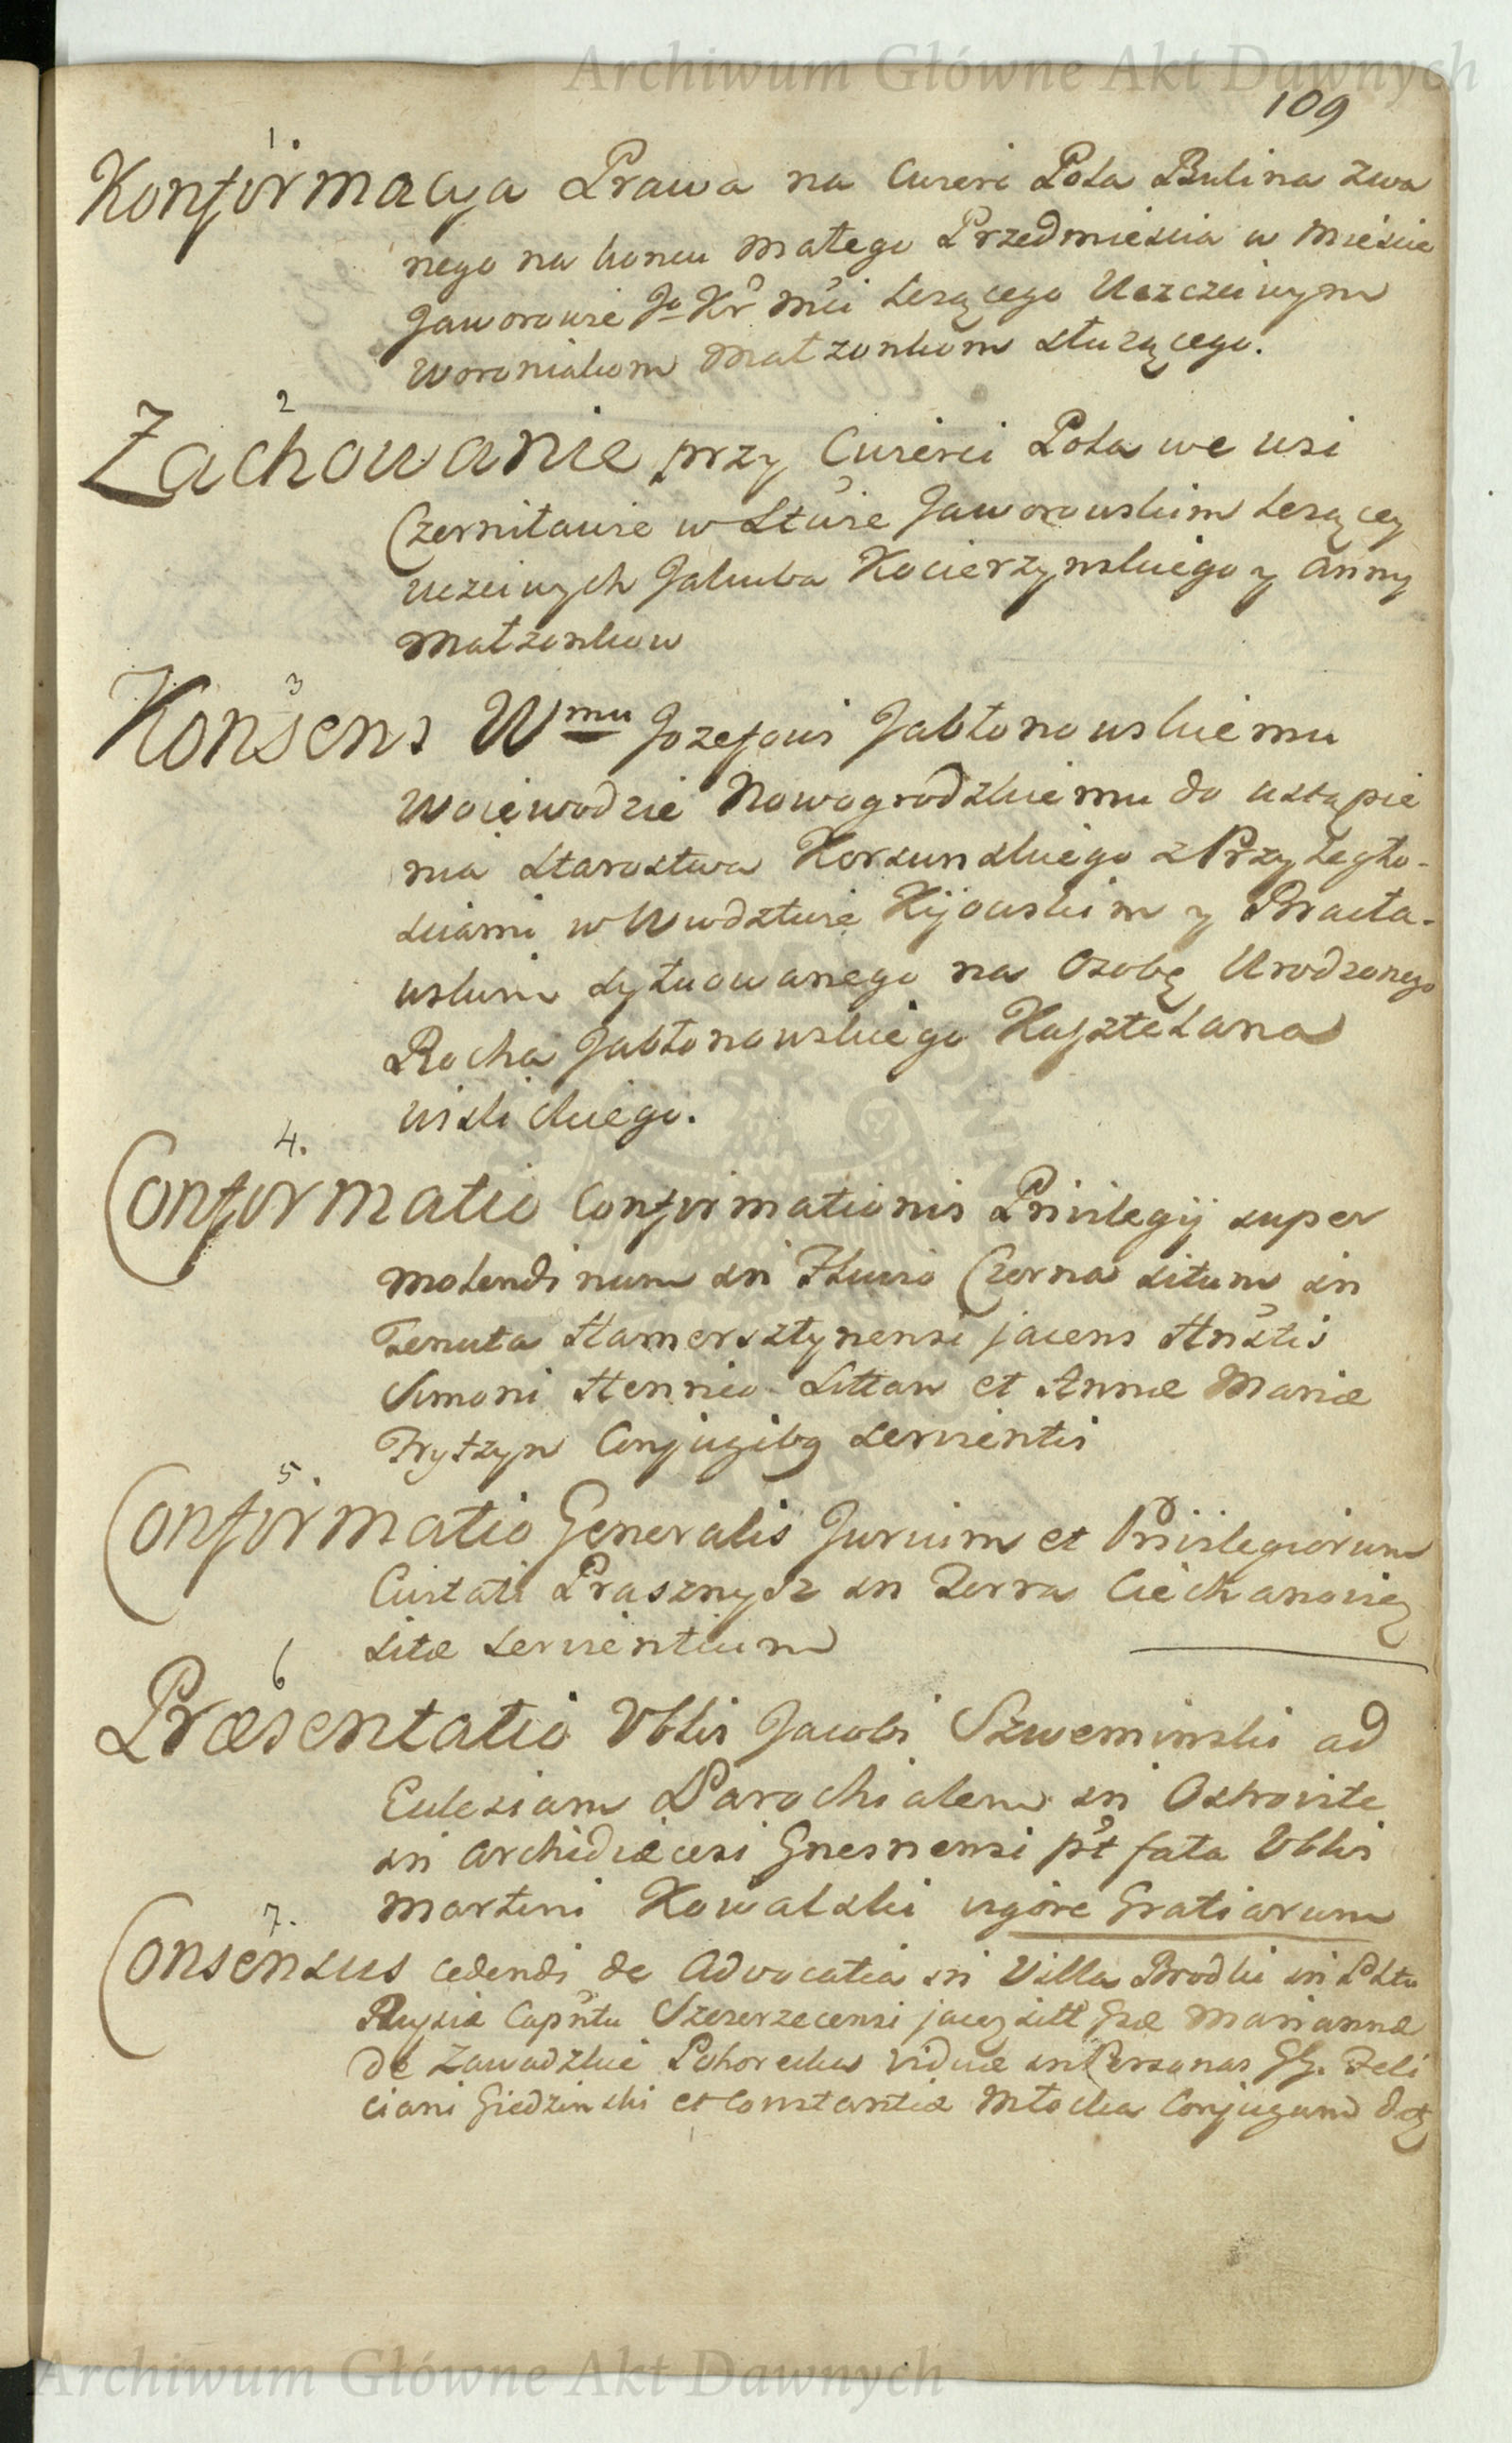 Archiwum Główne Akt Dawnych
109
1.
Konfirmacya Prawa na Cwierc Pola Bulina zwa
nego na koncu Małego Przedmiescia w Miescie
Jaworowie Jo Kr Mci Lezącego Uczciwym
Woroniakom Małzonkom słuzącego.
2
Zachowanie przy Cwierci Pola we wsi
Czerniławie w Stwie Jaworowskim Lezącey
uczciwych Jakuba Kocierzynskiego y Anny
Małzonkow
3
Konsens Wmu Jozefowi Jabłonowskiemu
Woiewodzie Nowogrodzkiemu do ustąpie
nia Starostwa Korsunskiego z Przyległo-
sciami w Wwdztwie Kijowskim y Bracła-
wskim sytuowanego na Osobę Urodzonego
Rocha Jabłonowskiego Kasztelana
Wislickiego.
4.
Confirmatio Confirmationis Privilegij super
Molendinum in Fluvio Czerna situm in
Tenuta Hamersztynensi jacens Hnstis
Simoni Henrico Littaw et Annæ Mariæ
Frytzyn Conjugibq servientis
5.
Confirmatio Generalis Jurium et Privilegiorum
Civitati Prasznysz in Terra Ciechanovien
sitæ servientium
6
Præsentatio Vblis Jacobi Szweminski ad
Ecclesiam Parochialem in Ostrovite
in Archidiæcesi Gnesnensi pt fata Vblis
Martini Kowalski vigore Gratiarum
7.
Consensus cedendi de Advocatia in Villa Brodki in Pltu
Russiæ Capntu Szczerzecensi jacen sitt Gsæ Mariannæ
de Zawadzkie Pohorecka viduæ in Personas GG. Feli
ciani Giedzinski et Constantiæ Młocka Conjugum dat
Archiwum Główne Akt Dawnych